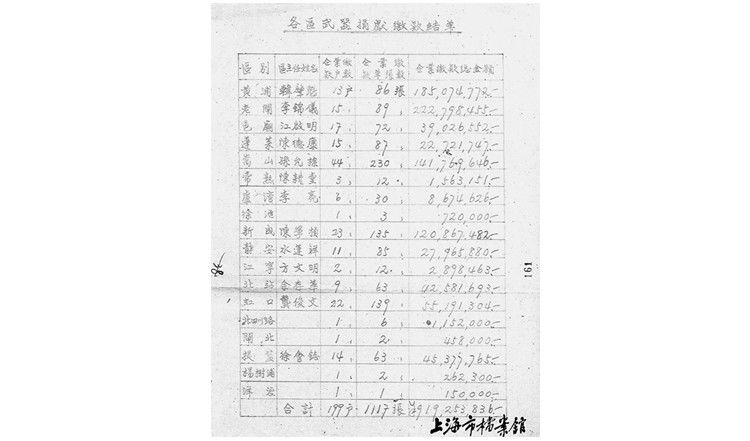 各區武器捐獻繳款結單
區別 區主任姓名 企業繳款戶數 企業繳款單張數 企業繳款總金額
黃浦 韓肇 13戶 86張 185,074,772.-
老閘 李錦儀 15〃 89〃 222,798,455.-
邑廟 江啟明 17〃 72〃 39,026,552.-
蓬萊 陳德康 15〃 87〃 22,721,747.-
嵩山 孫允 44〃 230〃 141,769,646.-
常熟 陳 3〃 12〃 1,563,151.-
盧灣 李亮 6〃 30〃 8,674,626.-
徐滙 1〃 3〃 720,000.-
新成 陳 23〃 135〃 120,867,482.-
靜安 水蓮祥 11〃 85〃 27,965,880.-
江寧 方文明 2〃 12〃 2,898,463.-
北站 9〃 63〃 42,581,693.-
虹口 龔俊文 22〃 139〃 55,191,304.-
北四川路 1〃 6〃 1,152,000.-
閘北 1〃 2〃 458,000.-
提籃 徐會 14〃 63〃 45,377,765.-
楊樹浦 1〃 2〃 262,300.-
洋涇 1〃 1〃 150,000.-
合計 199戶 1117張 919,253,836.-
161
上海市檔案館